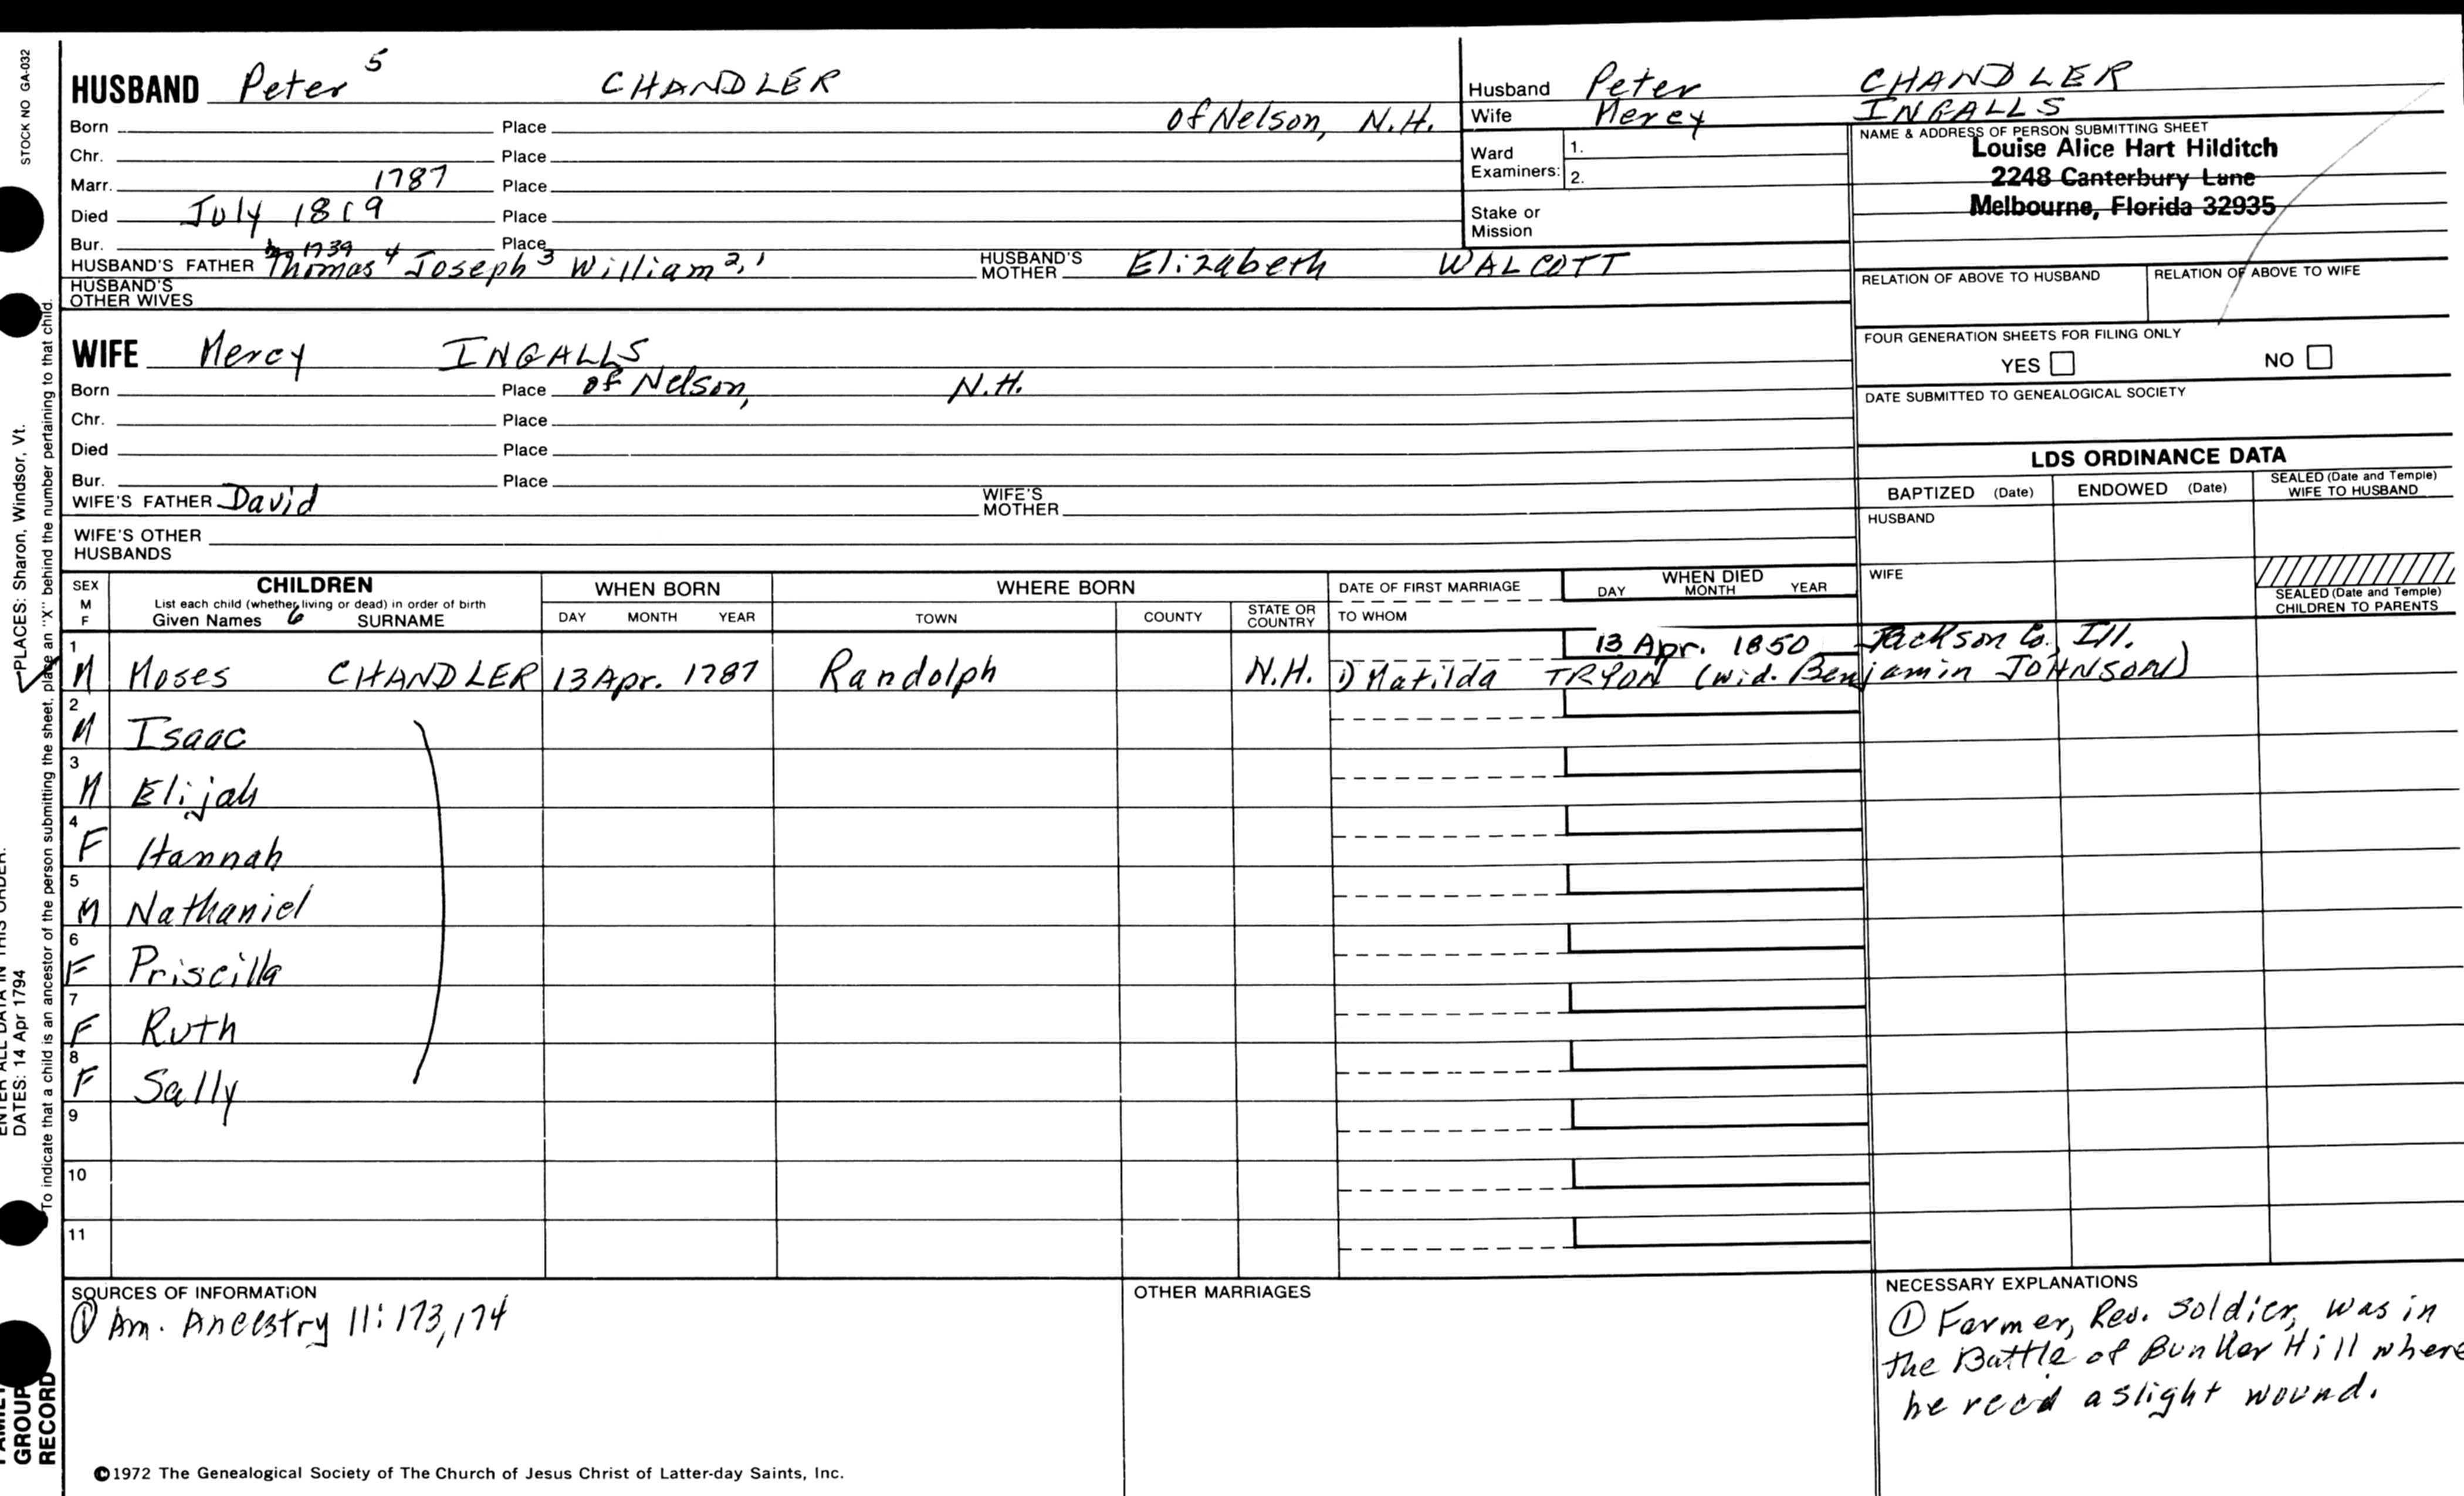 STOCK NO GA-032
HUSBAND Peter 5 CHANDLER
Born Place of Nelson, N.H.
Chr. Place
Marr. 1787 Place
Died July 1819 Place
Bur. Place
1739
HUSBAND'S FATHER Thomas 4 Joseph 3 William 2, 1 HUSBAND'S MOTHER Elizabeth WALCOTT
HUSBAND'S OTHER WIVES
Husband Peter CHANDLER
Wife Mercy INGALLS
Ward Examiners: 1.
2.
Stake or Mission
NAME & ADDRESS OF PERSON SUBMITTING SHEET
Louise Alice Hart Hilditch
2248 Canterbury Lane
Melbourne, Florida 32935
RELATION OF ABOVE TO HUSBAND RELATION OF ABOVE TO WIFE
FOUR GENERATION SHEETS FOR FILING ONLY
YES NO
DATE SUBMITTED TO GENEALOGICAL SOCIETY
WIFE Mercy INGALLS
Born Place of Nelson, N.H.
Chr. Place
Died Place
Bur. Place
WIFE'S FATHER David WIFE'S MOTHER
WIFE'S OTHER HUSBANDS
LDS ORDINANCE DATA
BAPTIZED (Date) ENDOWED (Date) SEALED (Date and Temple) WIFE TO HUSBAND
HUSBAND
WIFE
SEALED (Date and Temple) CHILDREN TO PARENTS
SEX M F CHILDREN WHEN BORN WHERE BORN DATE OF FIRST MARRIAGE WHEN DIED
List each child (whether living or dead) in order of birth
Given Names 6 SURNAME DAY MONTH YEAR TOWN COUNTY STATE OR COUNTRY TO WHOM DAY MONTH YEAR
13 Apr. 1850 Jackson Co., Ill.
1 M Moses CHANDLER 13 Apr. 1787 Randolph N.H. 1) Matilda TRYON (wid. Benjamin JOHNSON)
2 M Isaac
3 M Elijah
4 F Hannah
5 M Nathaniel
6 F Priscilla
7 F Ruth
8 F Sally
9
10
11
SOURCES OF INFORMATION
① Am. Ancestry 11: 173, 174
OTHER MARRIAGES
NECESSARY EXPLANATIONS
① Farmer, Rev. soldier, was in
the Battle of Bunker Hill where
he recd a slight wound.
©1972 The Genealogical Society of The Church of Jesus Christ of Latter-day Saints, Inc.
PLACES: Sharon, Windsor, Vt.
DATES: 14 Apr 1794
To indicate that a child is an ancestor of the person submitting the sheet, place an "X" behind the number pertaining to that child.
GROUP
RECORD